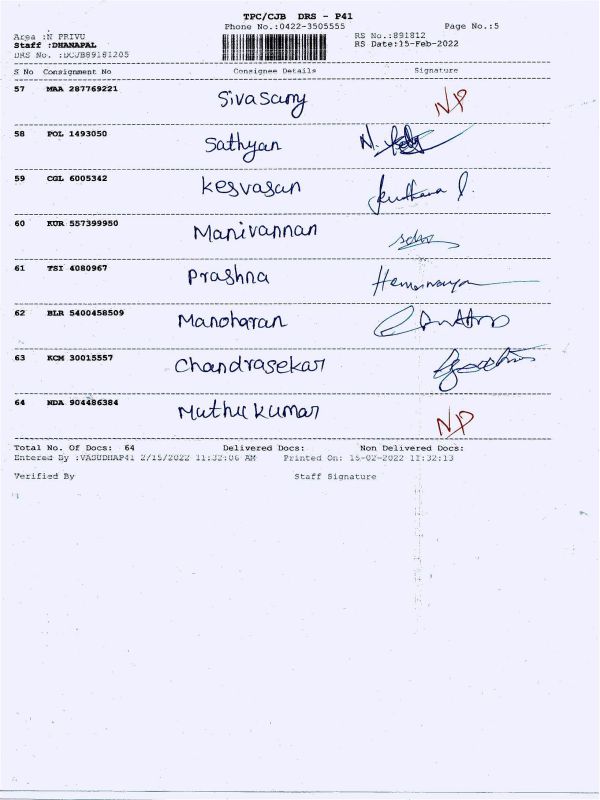 TPC/CJB DRS - P41
Phone No.:0422-3505555 Page No.:5
Area :N PRIVU RS No.:891812
Staff :DHANAPAL RS Date:15-Feb-2022
DRS No. :DCJB89181205
S No Consignment No Consignee Details Signature
57 MAA 287769221 Sivasamy NP
58 POL 1493050 Sathyan N.
59 CGL 6005342 Kesvasan
60 KUR 557399950 Manivannan
61 TSI 4080967 Prashna
62 BLR 5400458509 Manoharan
63 KCM 30015557 Chandrasekar
64 NDA 904486384 Muthu Kumar NP
Total No. Of Docs: 64 Delivered Docs: Non Delivered Docs:
Entered By :VASUDHAP41 2/15/2022 11:32:06 AM Printed On: 15-02-2022 11:32:13
Verified By Staff Signature